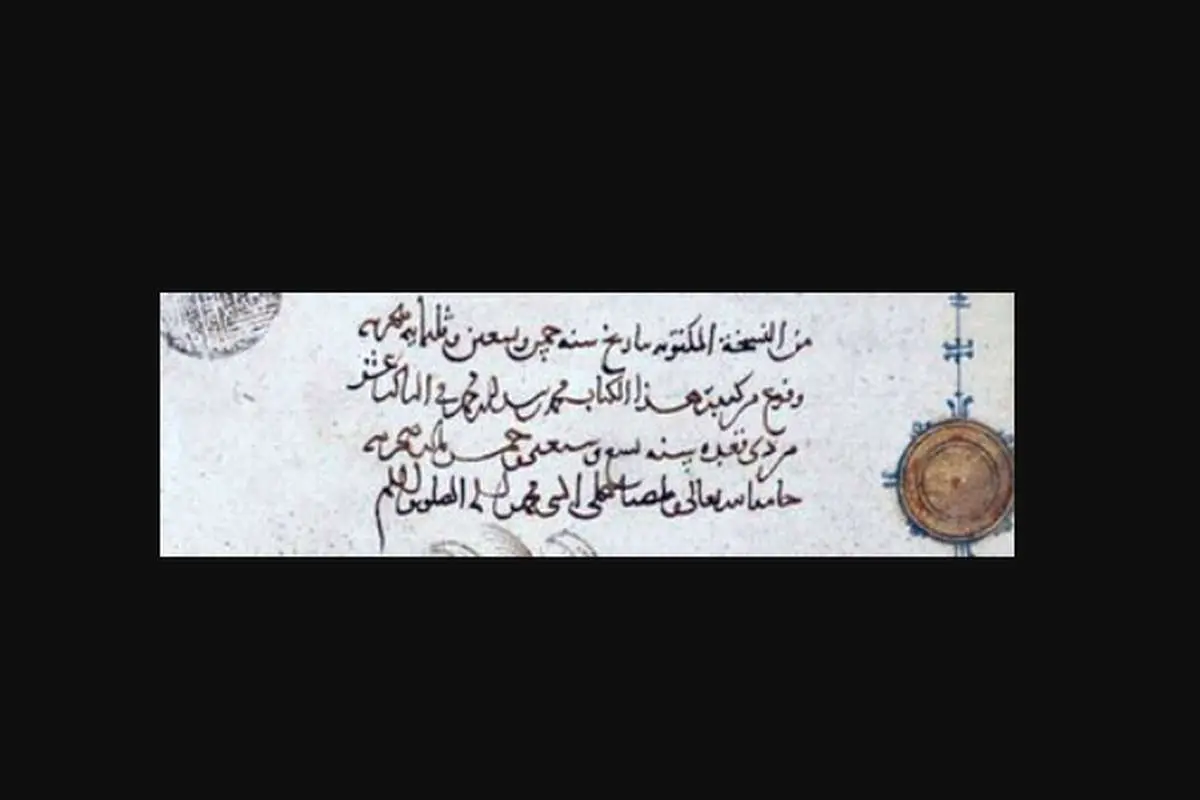 من النسخة المكتوبه بتاريخ سنه خمس وسبعين وثلثمايه هجريه
وفرغ من كتبة هذا الكتاب محمد بن محمد في الثالث عشر
من ذي قعده سنه تسع وسبعين وخمس مايه هجريه
حامدا لله تعالى ومصليا على النبي محمد واله الصلوة والسلم